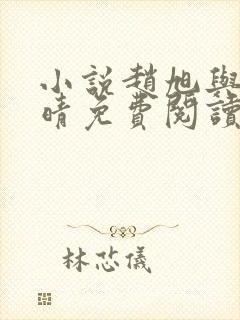 小說趙旭與
晴免費閱讀
林芯儀